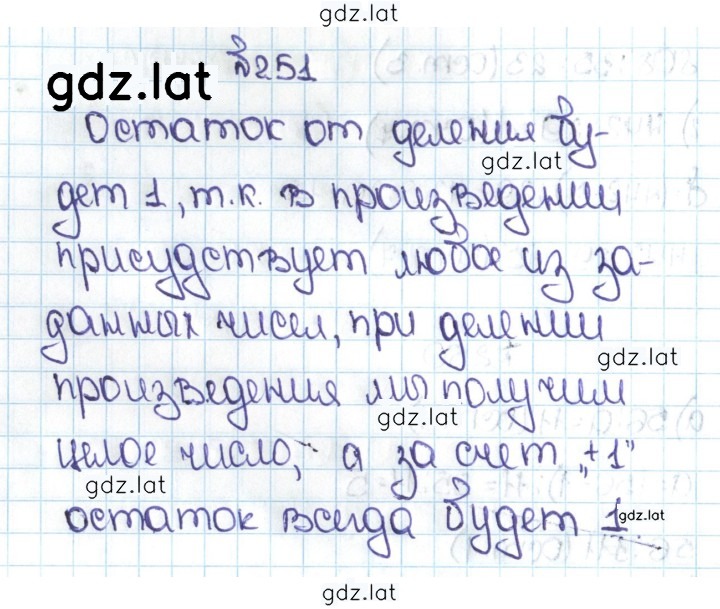 gdz.lat
№251
gdz.lat
Остаток от деления бу-
gdz.lat
дет 1, т.к. в произведении
присудствует любое из за-
данных чисел, при делении
gdz.lat
произведения мы получим
gdz.lat
целое число, а за счет „+1”
gdz.lat
остаток всегда будет 1
gdz.lat
gdz.lat